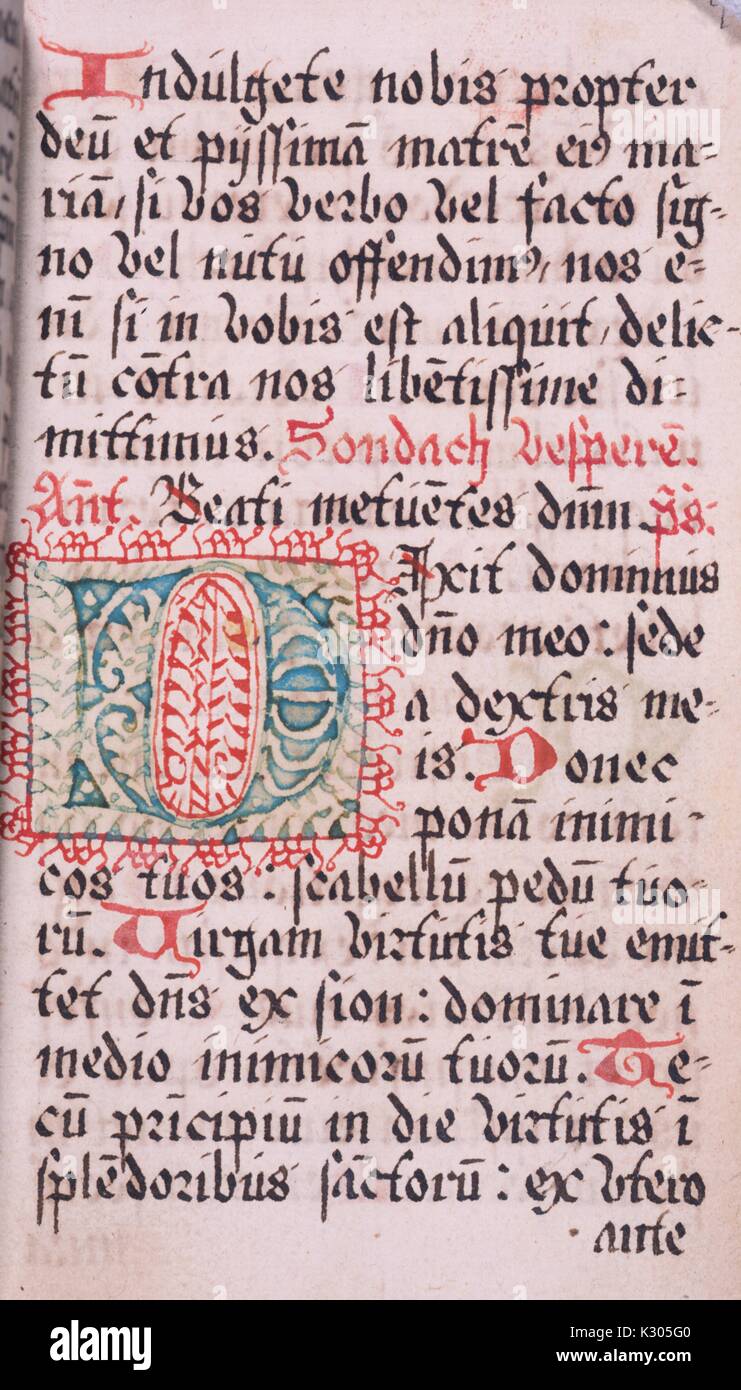 Indulgete nobis propter
deū et pijssimā matrē eiꝰ ma-
riā, si vos verbo vel facto sig-
no vel nutu offendimꝰ, nos e-
nī si in vobis est aliquit, delic-
tū cōtra nos libētissime di-
mittimus. Sondach vesperē.
Ant. Beati metuētes dnm. ps.
Dixit dominus
dno meo: sede
a dextris me-
is. Donec
ponā inimi-
cos tuos: scabellū pedū tuo-
rū. Virgam virtutis tue emit-
tet dns ex sion: dominare ī
medio inimicorū tuorū. Te-
cū prīcipiū in die virtutis ī
splēdoribus sāctorū: ex vtero
ante
alamy
alamy
a
alamy stock photo
K305G0
www.alamy.com